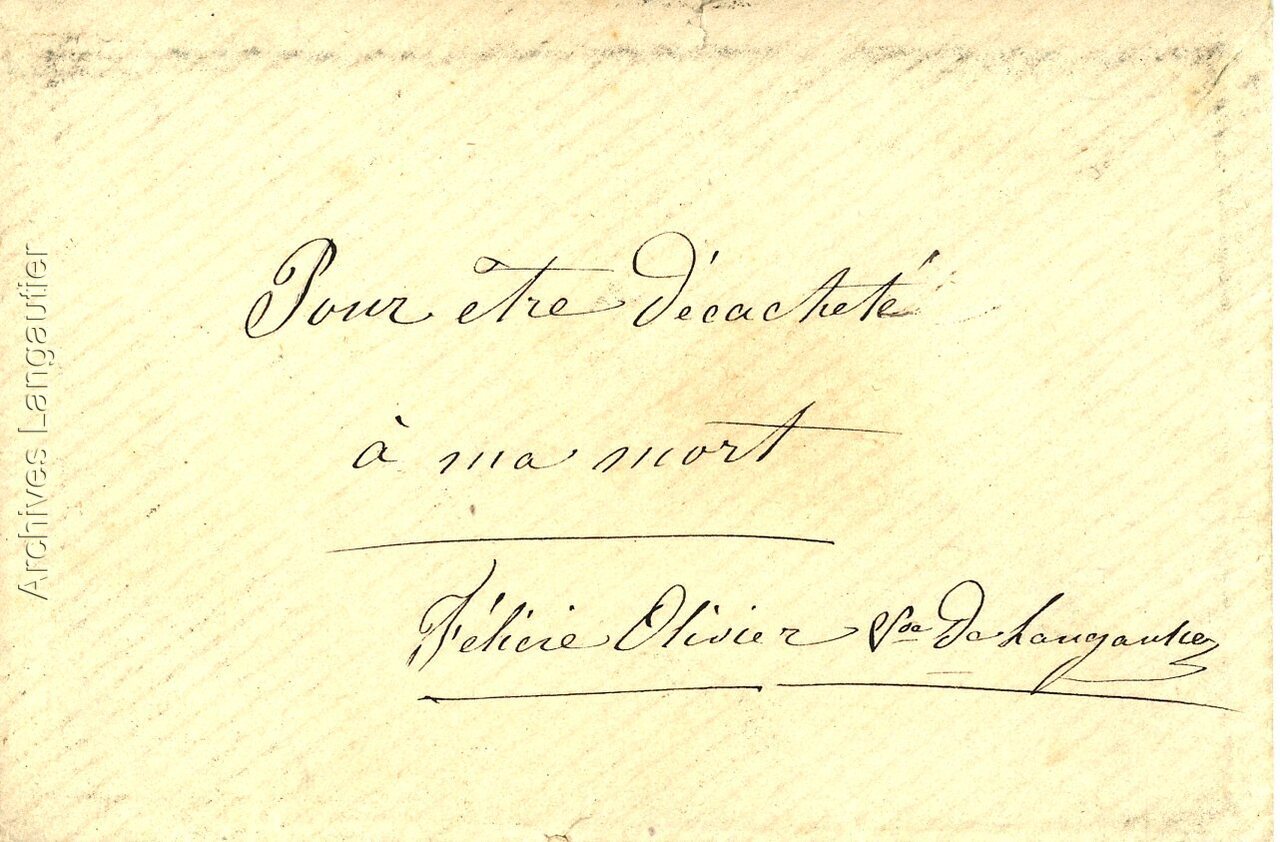 Pour etre décacheté
à ma mort
Félicie Olivier Vve De Langautier
Archives Langautier